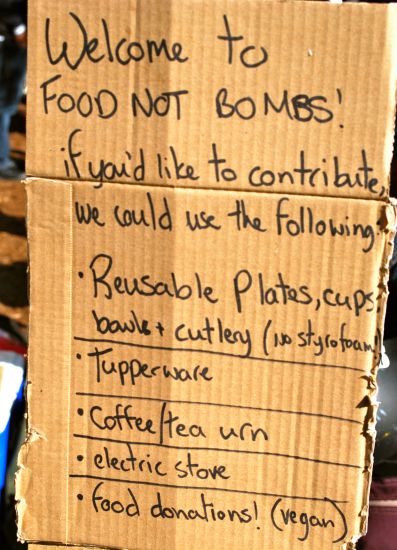 Welcome to
FOOD NOT BOMBS!
if you'd like to contribute,
we could use the following:
· Reusable Plates, cups,
bowls + cutlery (no styrofoam)
· Tupperware
· Coffee/tea urn
· electric stove
· food donations! (vegan)